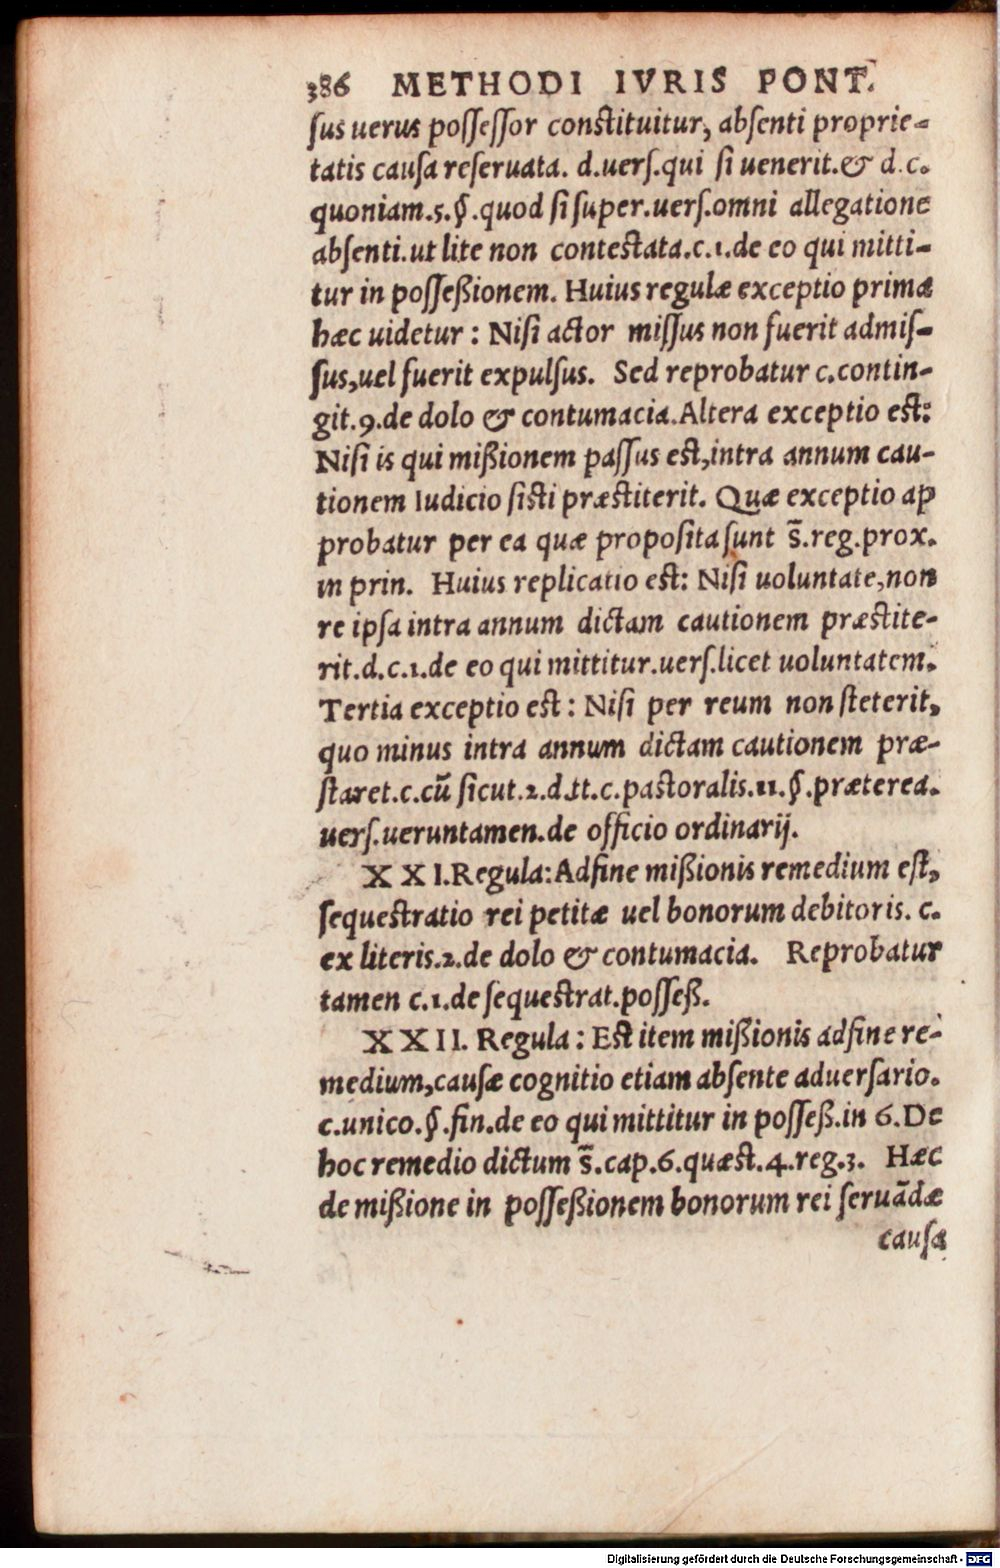 386 METHODI IVRIS PONT.
ſus uerus poſſeſſor conſtituitur, abſenti proprie-
tatis cauſa reſeruata. d.uerſ.qui ſi uenerit.& d.c.
quoniam.5.§.quod ſi ſuper.uerſ.omni allegatione
abſenti.ut lite non conteſtata.c.1.de eo qui mitti-
tur in poſſeßionem. Huius regulæ exceptio prima
hæc uidetur : Niſi actor miſſus non fuerit admiſ-
ſus,uel fuerit expulſus. Sed reprobatur c.contin-
git.9.de dolo & contumacia.Altera exceptio eſt:
Niſi is qui mißionem paſſus eſt,intra annum cau-
tionem Iudicio ſiſti præſtiterit. Quæ exceptio ap
probatur per ea quæ propoſita ſunt s̄.reg.prox.
in prin. Huius replicatio eſt: Niſi uoluntate,non
re ipſa intra annum dictam cautionem præſtite-
rit.d.c.1.de eo qui mittitur.uerſ.licet uoluntatem.
Tertia exceptio eſt : Niſi per reum non ſteterit,
quo minus intra annum dictam cautionem præ-
ſtaret.c.cū ſicut.2.d.tt.c.paſtoralis.11.§.præterea.
uerſ.ueruntamen.de officio ordinarij.
XXI.Regula:Adfine mißionis remedium eſt,
ſequeſtratio rei petitæ uel bonorum debitoris. c.
ex literis.2.de dolo & contumacia. Reprobatur
tamen c.1.de ſequeſtrat.poſſeß.
XXII. Regula : Eſt item mißionis adfine re-
medium,cauſæ cognitio etiam abſente aduerſario.
c.unico.§.fin.de eo qui mittitur in poſſeß.in 6.De
hoc remedio dictum s̄.cap.6.quæſt.4.reg.3. Hæc
de mißione in poſſeßionem bonorum rei ſeruādæ
cauſa
Digitalisierung gefördert durch die Deutsche Forschungsgemeinschaft - DFG